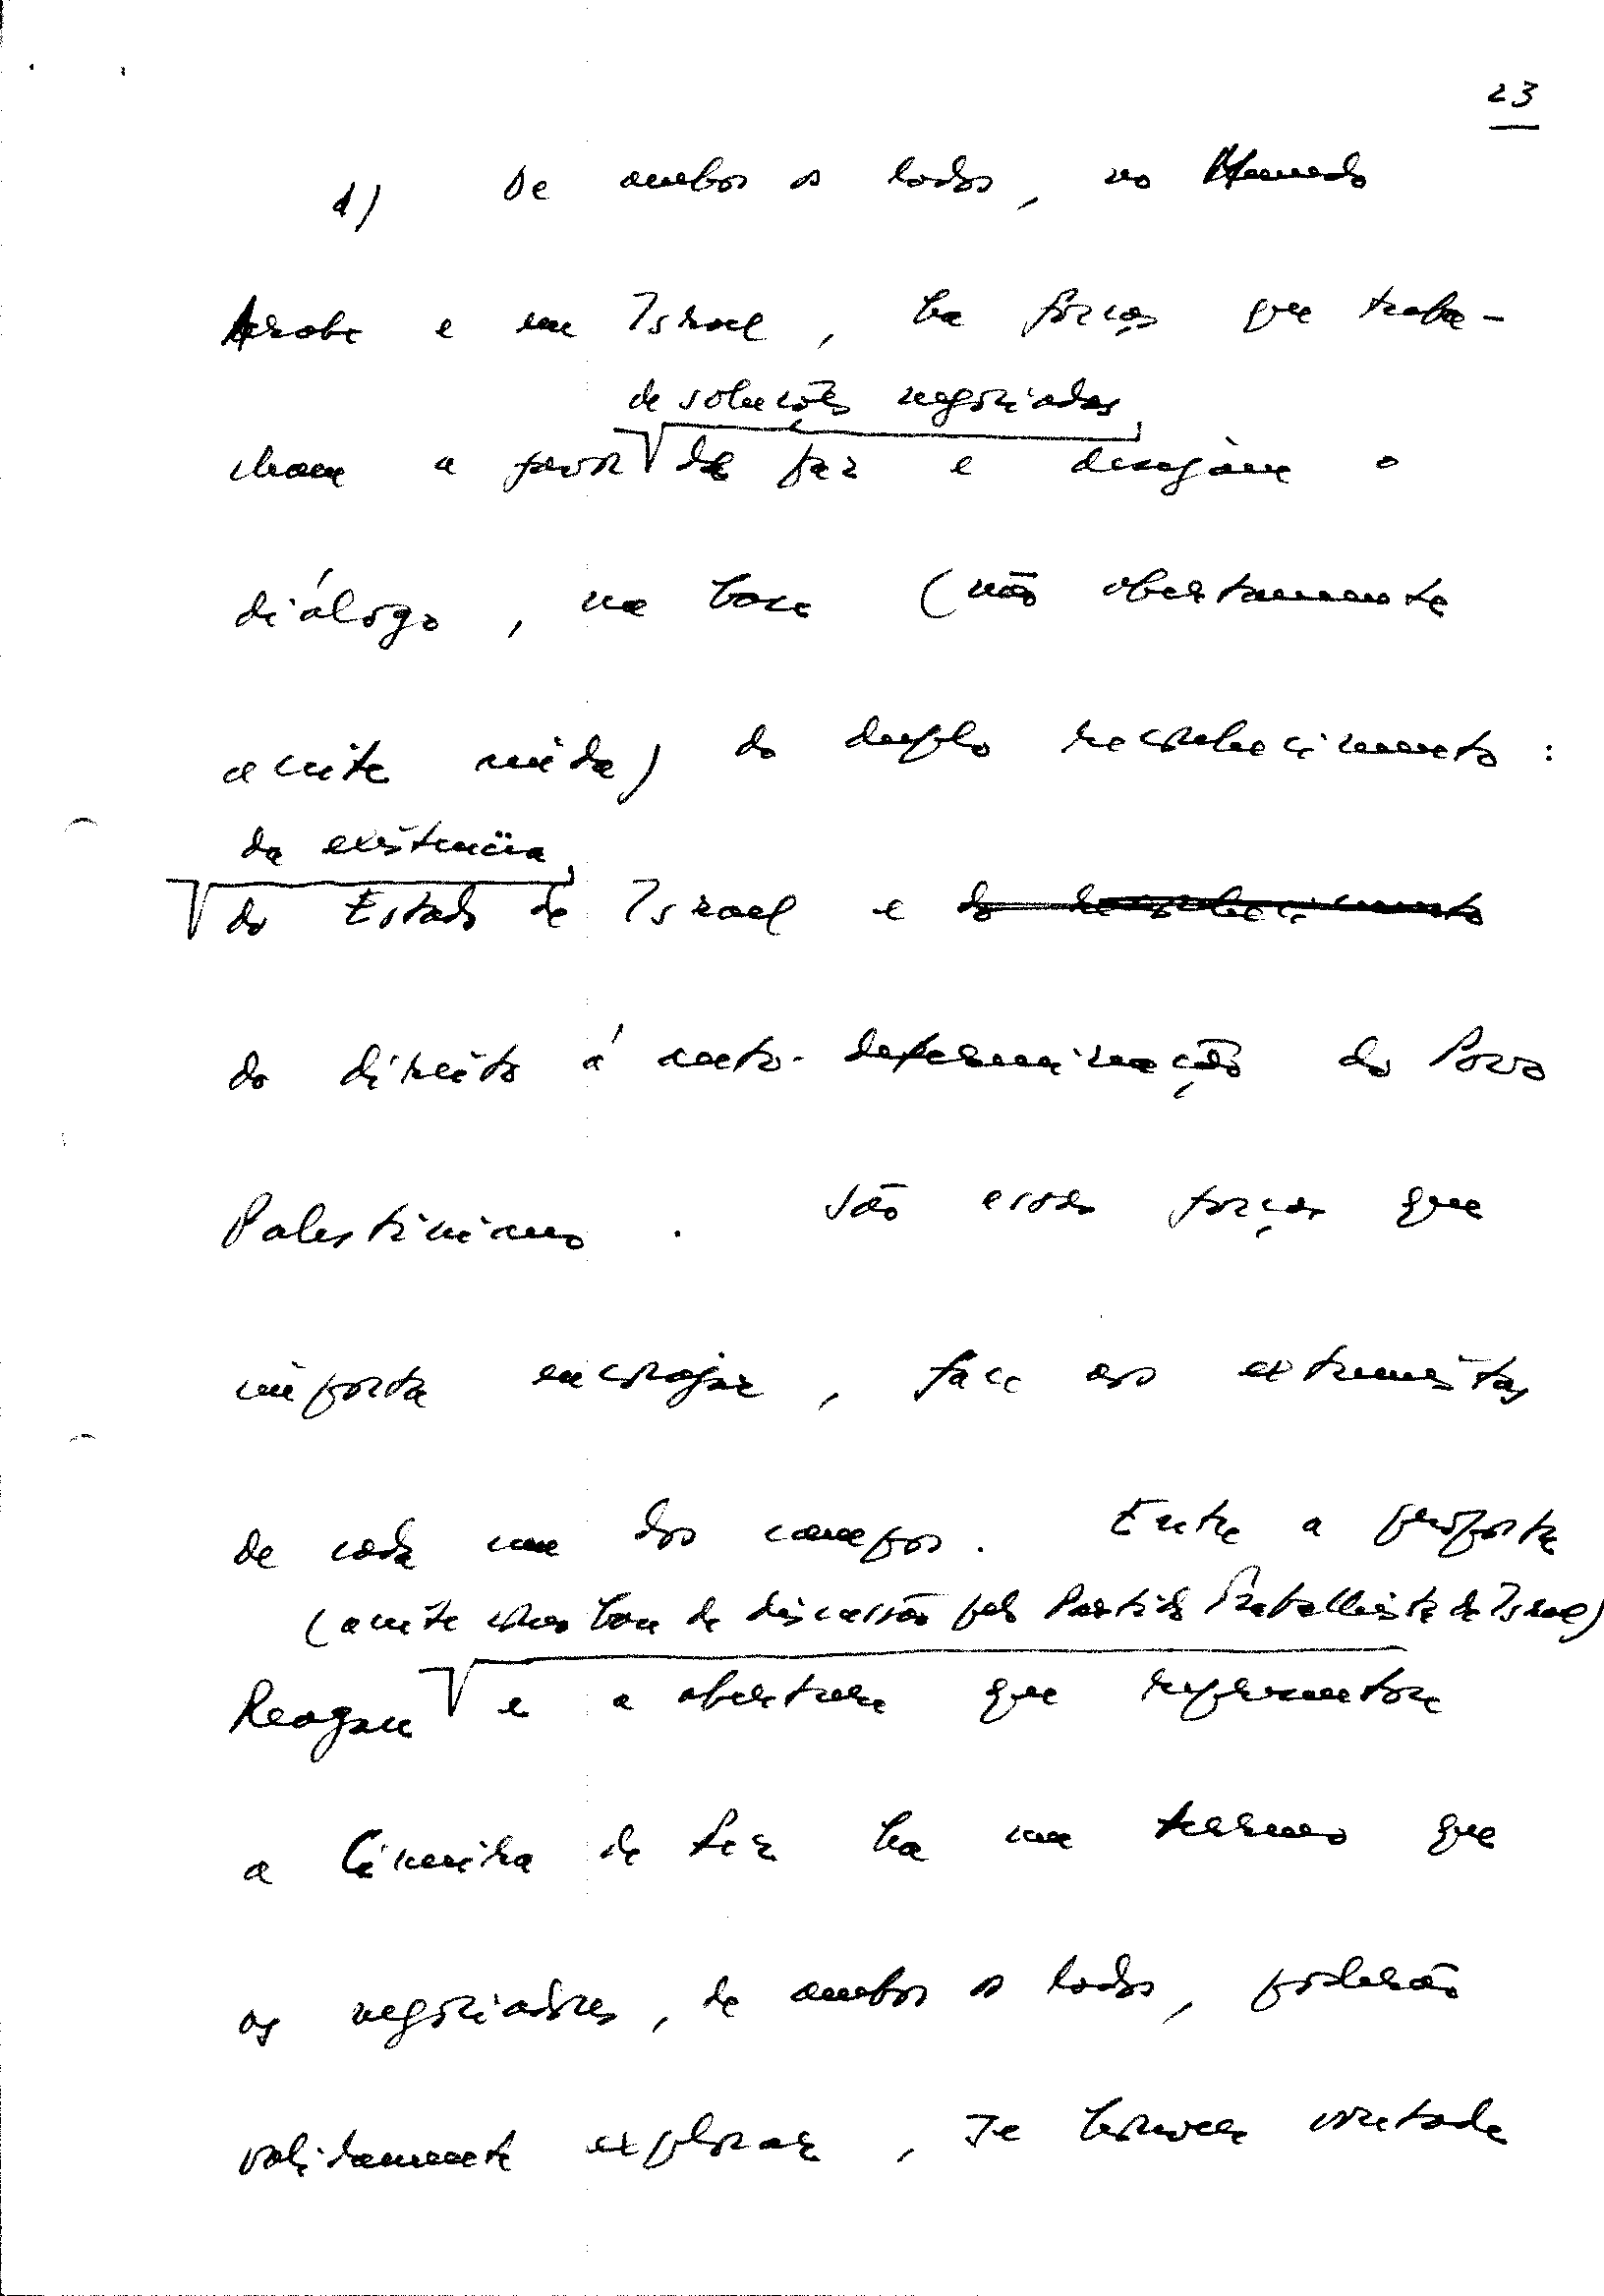 23
d) De ambos os lados, no Mundo
Árabe e em Israel, ha forças que traba-
de soluções negociadas
lham a favor da paz e desejam o
diálogo, na base (não abertamente
aceite ainda) do duplo reconhecimento:
da existência
do Estado de Israel e do reconhecimento
do direito á auto-determinação do Povo
Palestiniano. São essas forças que
importa encorajar, face aos extremistas
de cada um dos campos. Entre a proposta
(aceite como base de discussão pelo Partido Trabalhista de Israel)
Reagan e a abertura que representou
a Cimeira de Fez ha um terreno que
os negociadores, de ambos os lados, poderão
validamente explorar, se houver vontade